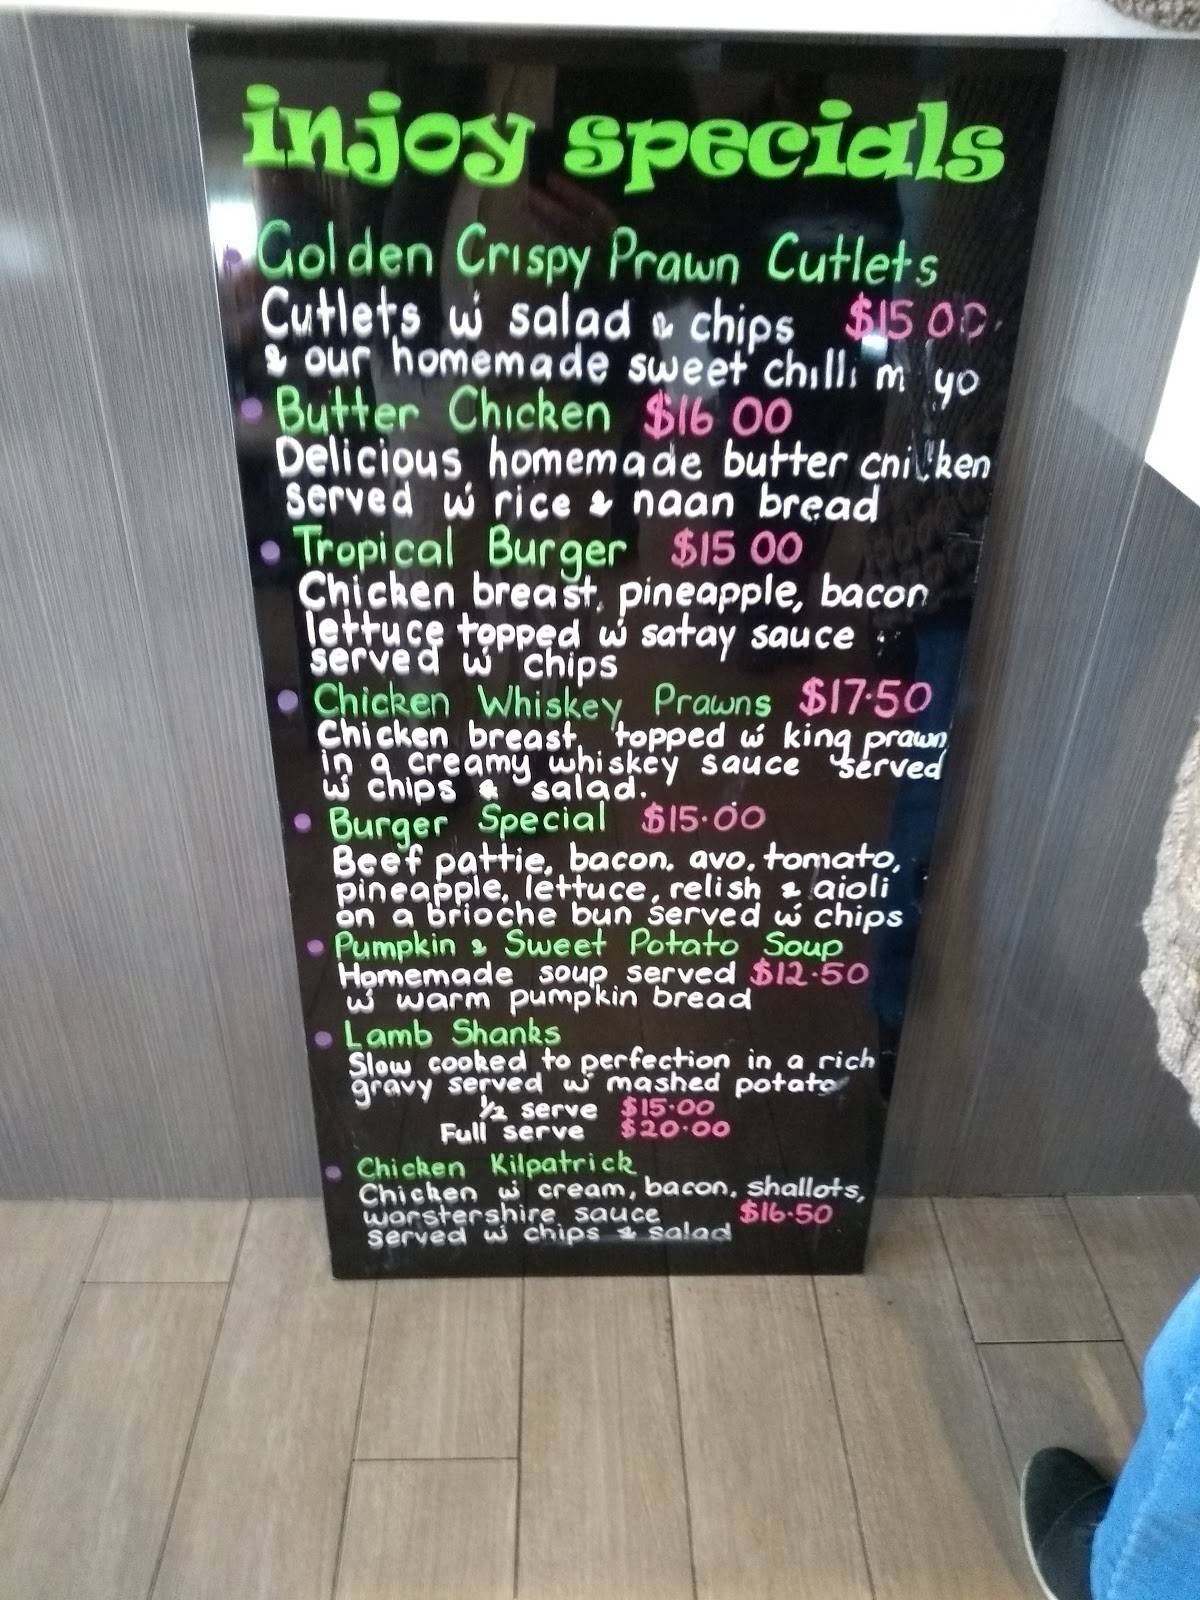 injoy specials
Golden Crispy Prawn Cutlets
Cutlets w' salad & chips $15 00
& our homemade sweet chilli m yo
Butter Chicken $16 00
Delicious homemade butter chicken
served w' rice & naan bread
Tropical Burger $15 00
Chicken breast, pineapple, bacon
lettuce topped w' satay sauce
served w' chips
Chicken Whiskey Prawns $17.50
Chicken breast topped w' king prawn
in a creamy whiskey sauce served
w' chips & salad.
Burger Special $15.00
Beef pattie, bacon, avo, tomato,
pineapple, lettuce, relish & aioli
on a brioche bun served w' chips
Pumpkin & Sweet Potato Soup
Homemade soup served $12.50
w' warm pumpkin bread
Lamb Shanks
Slow cooked to perfection in a rich
gravy served w' mashed potato
1/2 serve $15.00
Full serve $20.00
Chicken Kilpatrick
Chicken w' cream, bacon, shallots,
worstershire sauce $16.50
served w' chips & salad